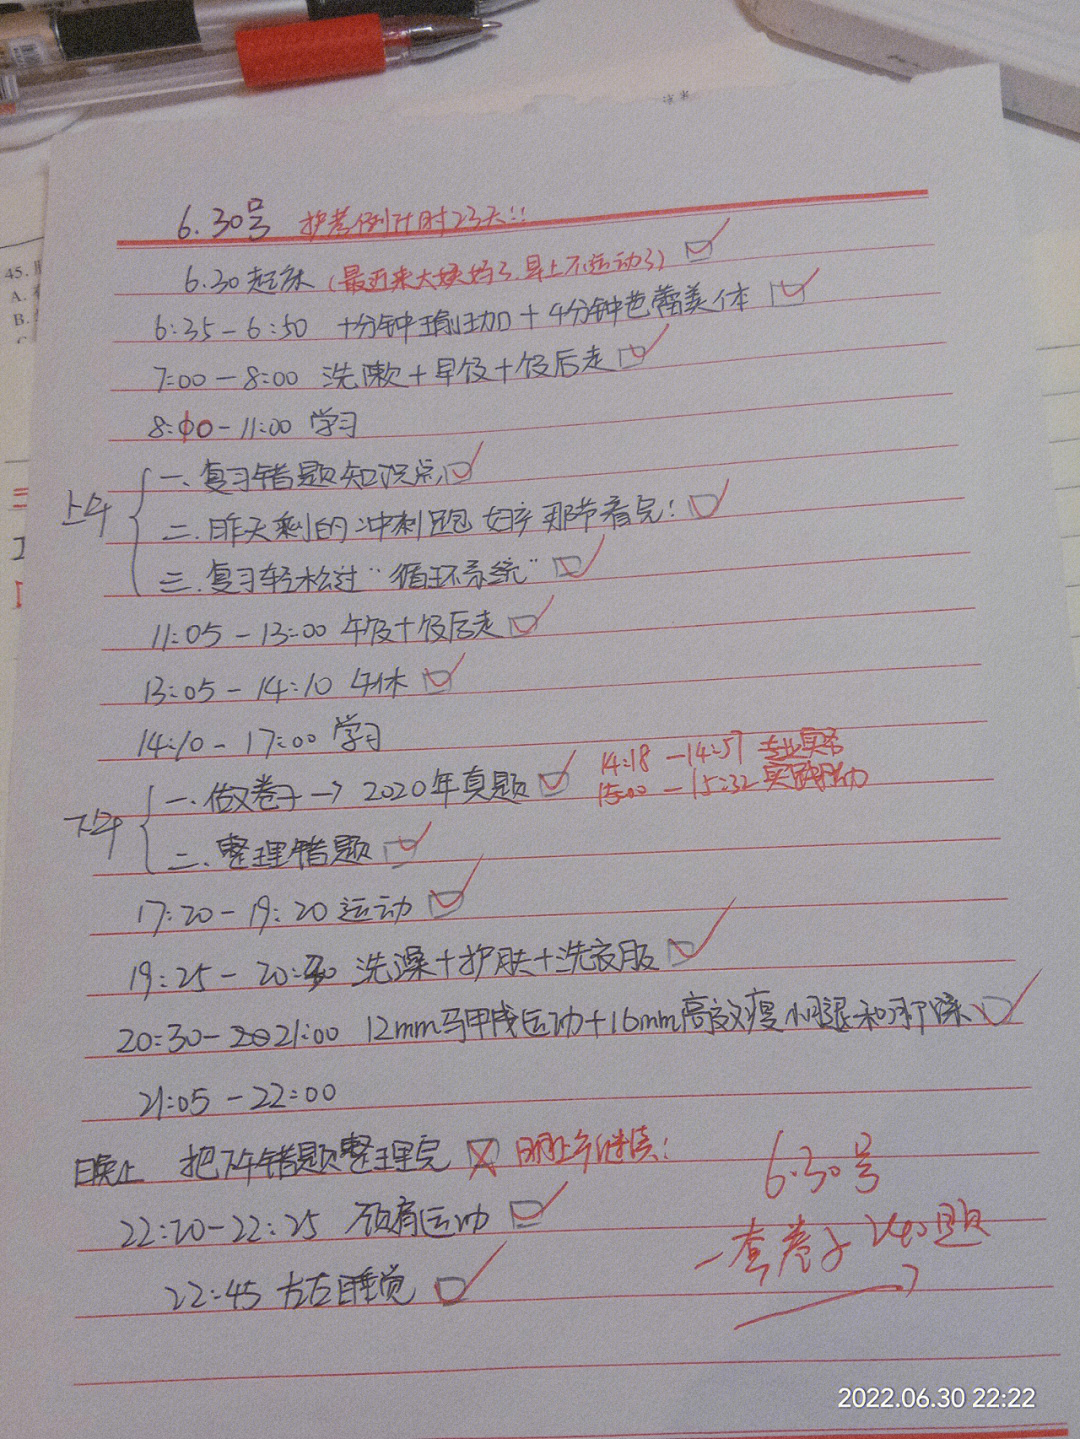 45.
A.
B.
6.30号 护考倒计时23天!!
6.30起床（最近来大姨妈了.早上不运动了）
6:35-6:50 十分钟瑜珈+4分钟芭蕾美体
7:00-8:00 洗漱+早饭+饭后走
8:00-11:00 学习
上午
一、复习错题知识点
二、昨天剩的冲刺跑 妇产 那节看完!
三、复习轻松过"循环系统"
11:05-13:00 午饭+饭后走
13:05-14:10 午休
14:10-17:00 学习
下午
一、做卷子→2020年真题
14:18-14:57 专业实务
15:00-15:32 实践能力
二、整理错题
17:20-19:20 运动
19:25-20:30 洗澡+护肤+洗衣服
20:30-21:00 12mm马甲线运动+16mm高效瘦小腿和
21:05-22:00
晚上 把下午错题整理完 明上午继续!
22:20-22:25 颈肩运动
22:45左右睡觉
6.30号
一套卷子240题
2022.06.30 22:22